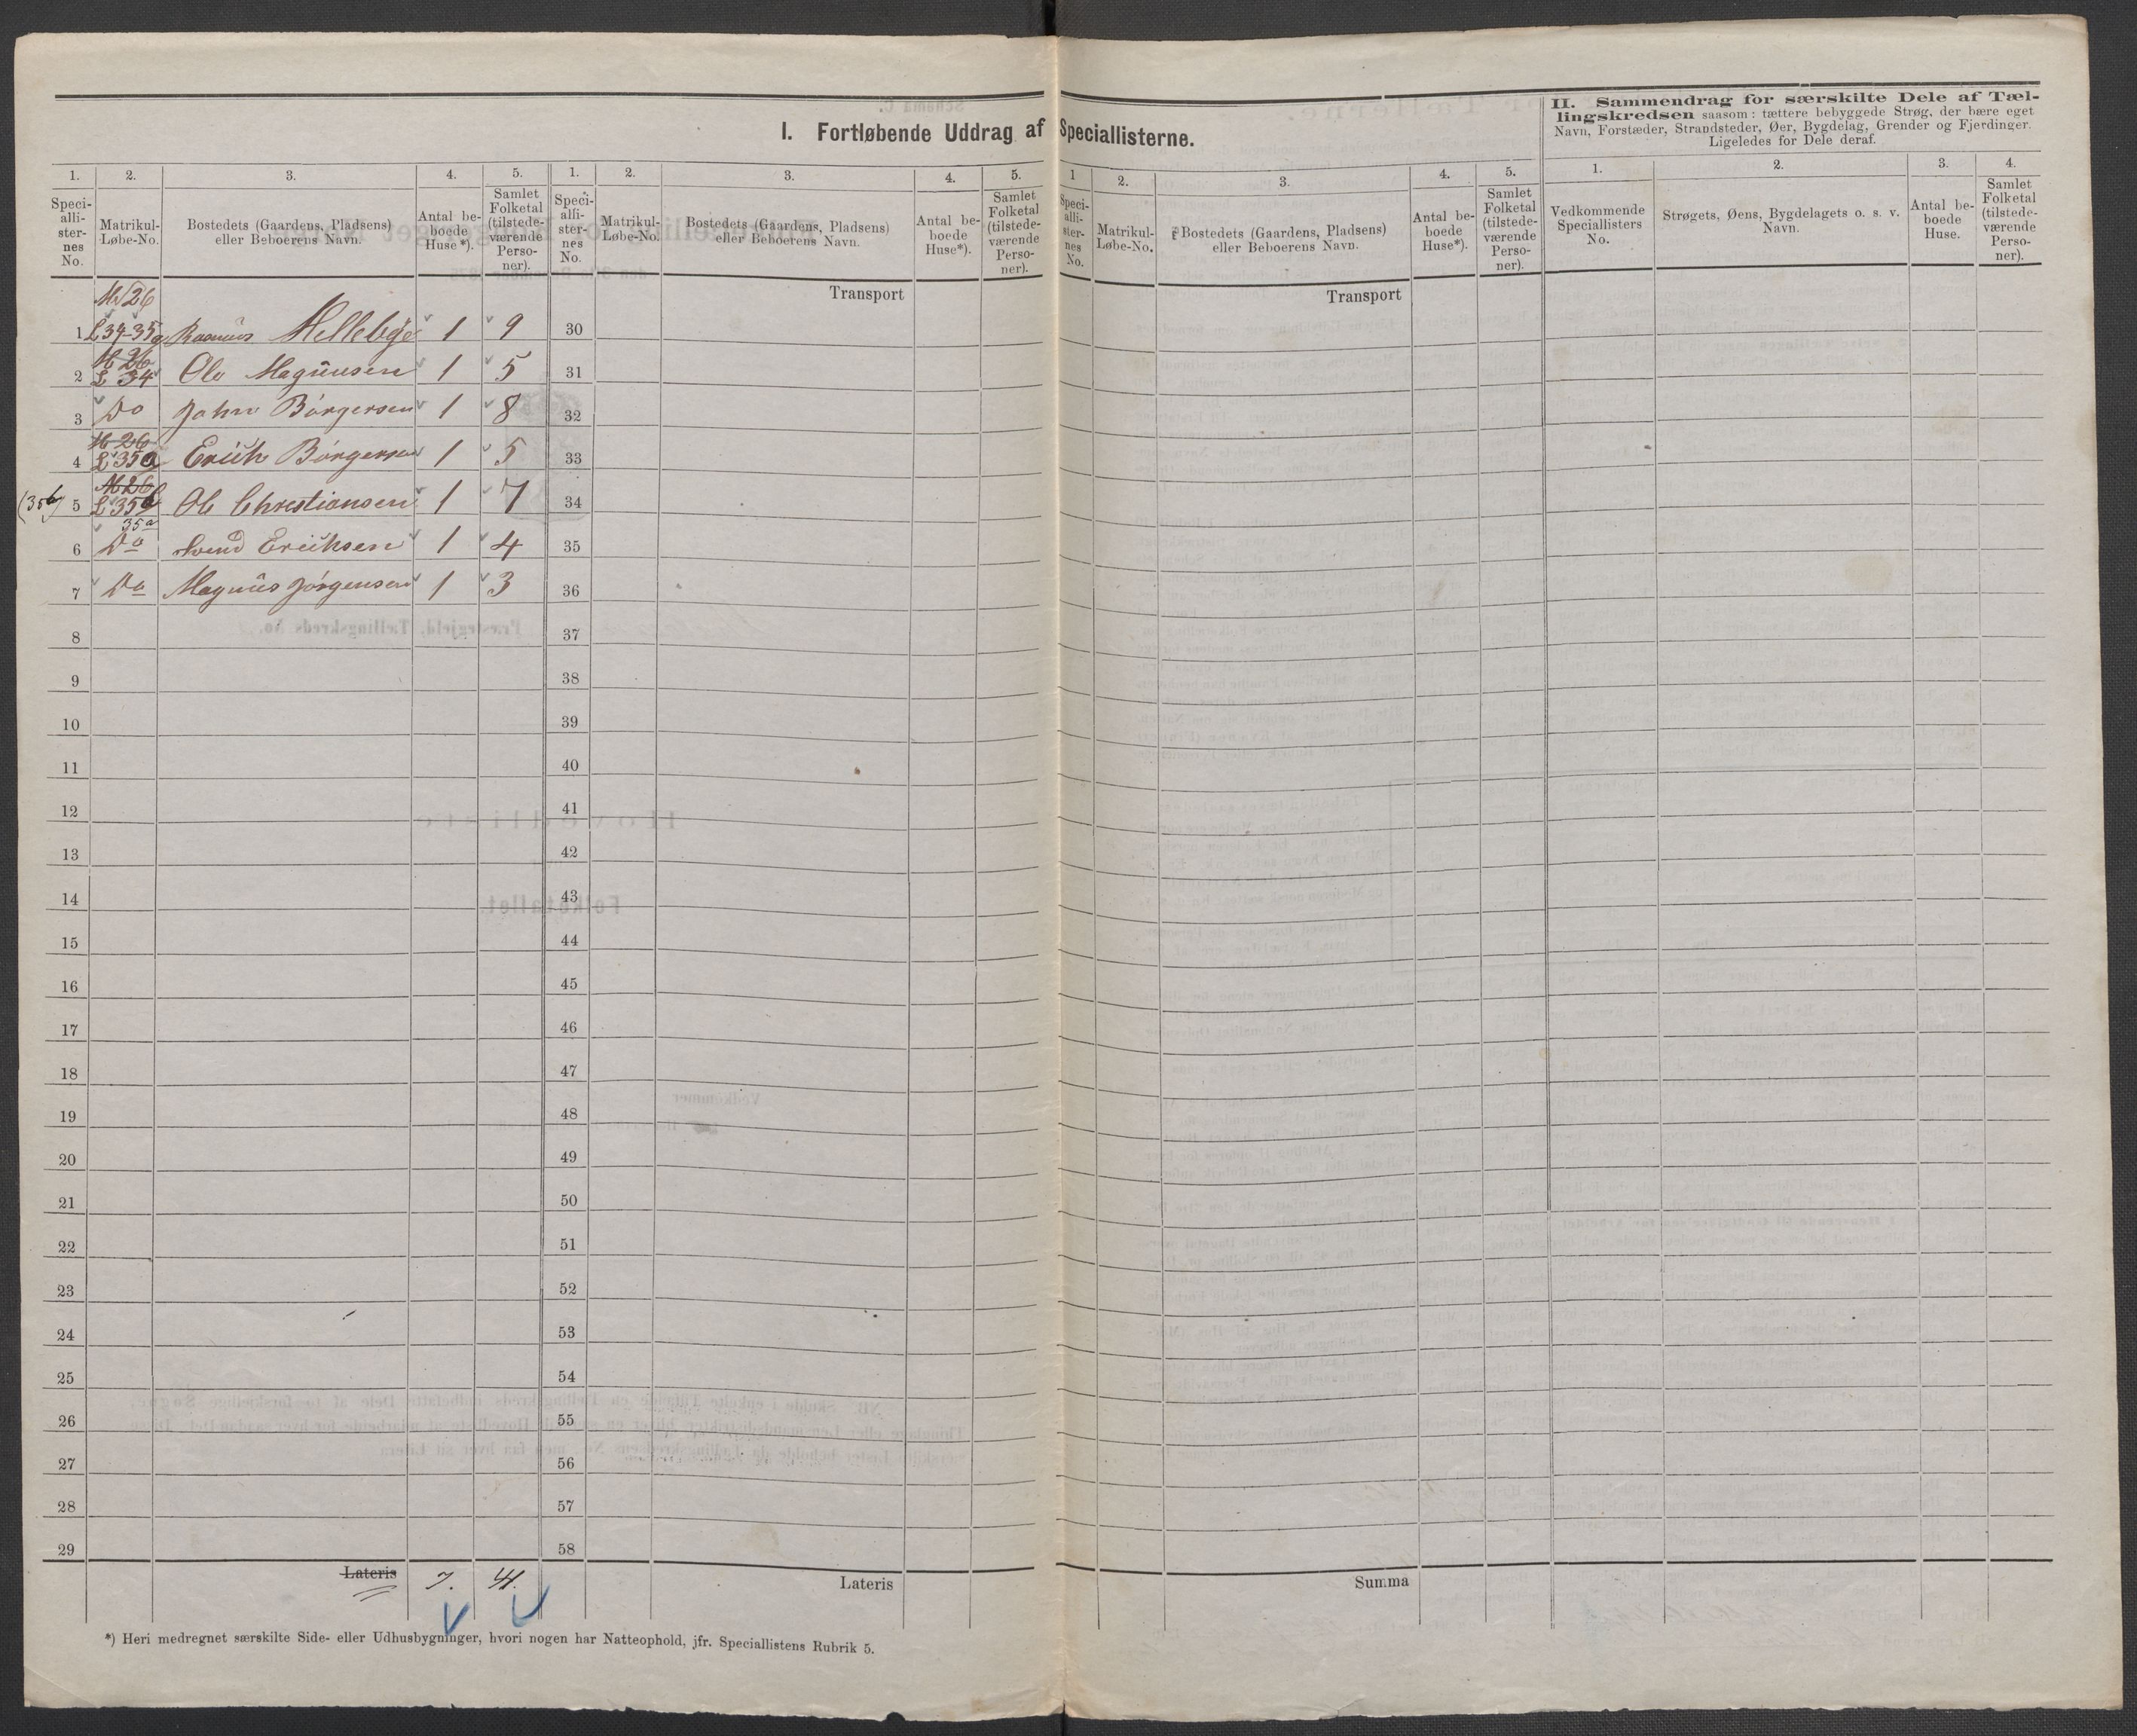 I. Fortløbende Uddrag af Speciallisterne.
II. Sammendrag for særskilte Dele af Tæl-
lingskredsen saasom: tættere bebyggede Strøg, der bære eget
Navn, Forstæder, Strandsteder, Øer, Bygdelag, Grender og Fjerdinger.
Ligeledes for Dele deraf.
1. 2. 3. 4. 5. 1. 2. 3. 4. 5. 1 2. 3. 4. 5. 1. 2. 3. 4.
Speci-
alli-
ster-
nes
No.
Matrikul-
Løbe-No.
Bostedets (Gaardens, Pladsens)
eller Beboerens Navn.
Antal be-
boede
Huse*).
Samlet
Folketal
(tilstede-
værende
Perso-
ner).
Speci-
alli-
ster-
nes
No.
Matrikul-
Løbe-No.
Bostedets (Gaardens, Pladsens)
eller Beboerens Navn.
Antal be-
boede
Huse*).
Samlet
Folketal
(tilstede-
værende
Perso-
ner).
Speci-
alli-
ster-
nes
No.
Matrikul-
Løbe-No.
Bostedets (Gaardens, Pladsens)
eller Beboerens Navn.
Antal be-
boede
Huse*).
Samlet
Folketal
(tilstede-
værende
Perso-
ner).
Vedkommende
Speciallisters
No.
Strøgets, Øens, Bygdelagets o. s. v.
Navn.
Antal be-
boede
Huse.
Samlet
Folketal
(tilstede-
værende
Perso-
ner).
Transport
Transport
M 26
1 L 34-35a Rasmus 1 9 30
M 26
2 L 34 Ole Magnusen 1 5 31
3 Do John Börgersen 1 8 32
M 26
4 L 35a Erich Börgersen 1 5 33
M 26
(35b) 5 L 35b Ole Christiansen 1 7 34
35a
6 Do Svend Eriksen 1 4 35
7 Do Magnus Jörgensen 1 3 36
8 37
9 38
10 39
11 40
12 41
13 42
14 43
15 44
16 45
17 46
18 47
19 48
20 49
21 50
22 51
23 52
24 53
25 54
26 55
27 56
28 57
29 58
Lateris 7. 41. Lateris Summa
*) Heri medregnet særskilte Side- eller Udhusbygninger, hvori nogen har Natteophold, jfr. Speciallistens Rubrik 5.